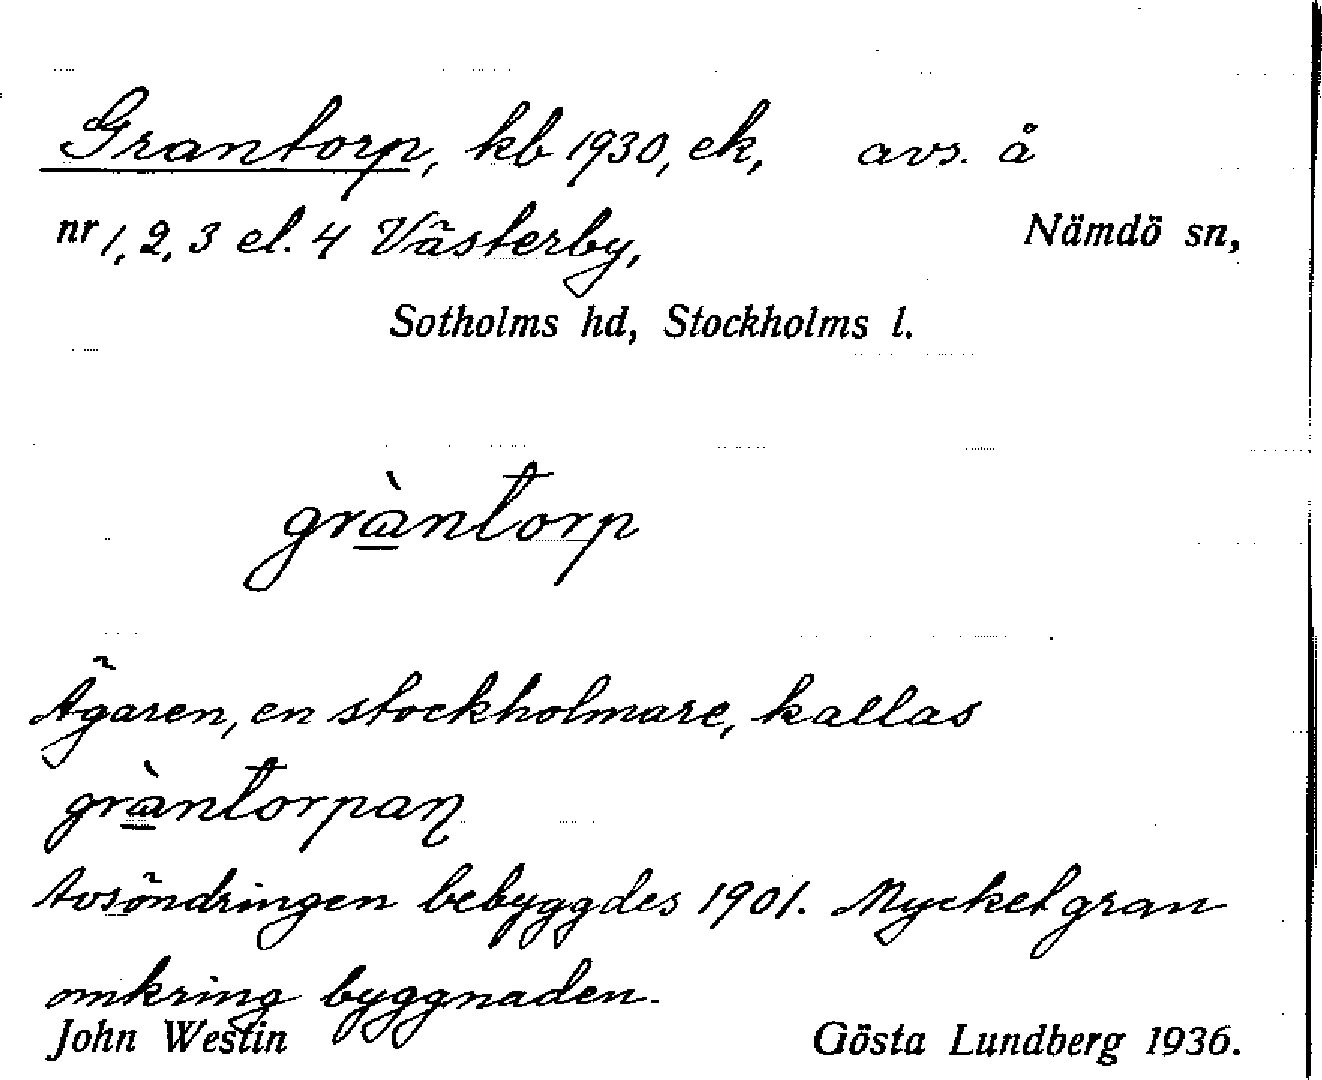 Grantorp, kb 1930, ek, avs. å
nr 1, 2, 3 el. 4 Västerby, Nämdö sn,
Sotholms hd, Stockholms l.
gràntorp
Ägaren, en stockholmare, kallas
gràntorpaŋ
Avsöndringen bebyggdes 1901. Mycket gran
omkring byggnaden.
John Westin Gösta Lundberg 1936.